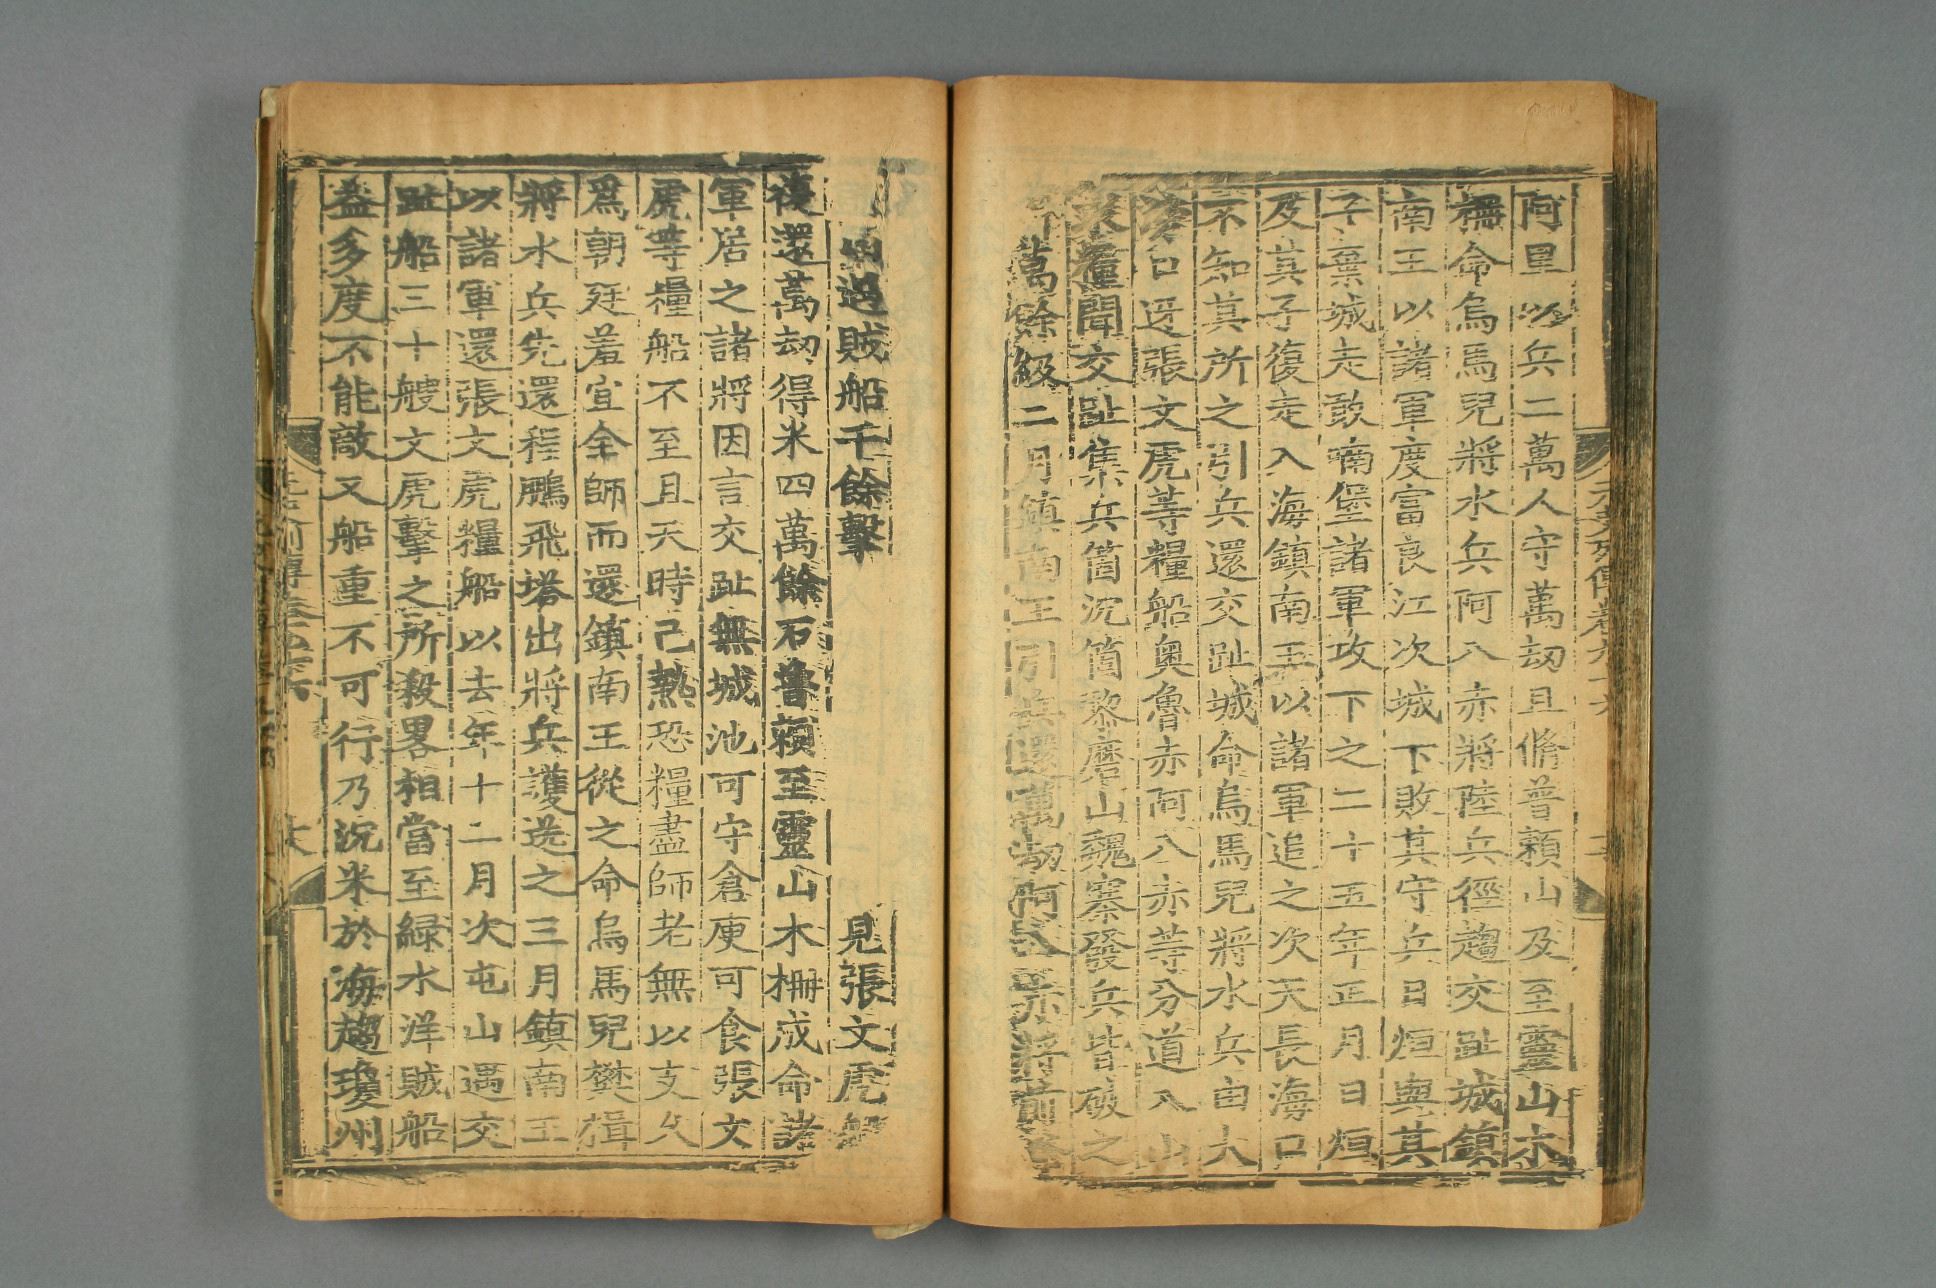 阿里以兵二萬人守萬刼且脩普賴山及至靈山木
柵命烏馬兒將水兵阿八赤將陸兵徑趨交趾城鎮
南王以諸軍度富良江次城下敗其守兵日烜與其
子棄城走敢喃堡諸軍攻下之二十五年正月日烜
及其子復走入海鎮南王以諸軍追之次天長海口
不知其所之引兵還交趾城命烏馬兒將水兵由大
滂口迓張文虎等糧船奧魯赤阿八赤等分道入山
求糧聞交趾集兵箇沉箇黎磨山魏寨發兵皆破之
斬萬餘級二月鎮南王引兵還萬刼阿八赤將前鋒
口過賊船千餘擊 見張文虎船
復還萬刼得米四萬餘石普賴至靈山木柵成命諸
軍居之諸將因言交趾無城池可守倉庾可食張文
虎等糧船不至且天時已熱恐糧盡師老無以支久
爲朝廷羞宜全師而還鎮南王從之命烏馬兒樊楫
將水兵先還程鵬飛塔出將兵護送之三月鎮南王
以諸軍還張文虎糧船以去年十二月次屯山遇交
趾船三十艘文虎擊之所殺畧相當至綠水洋賊船
益多度不能敵又船重不可行乃沉米於海趨瓊州